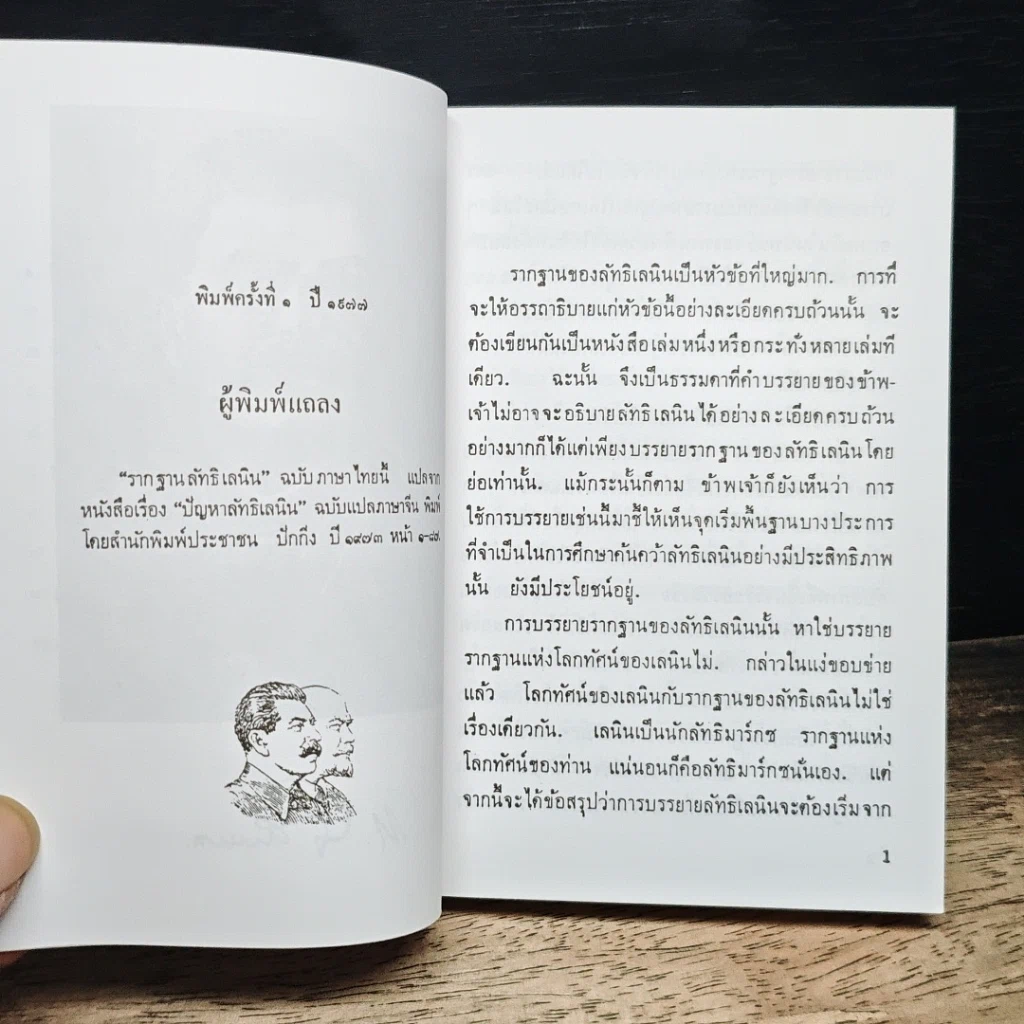 พิมพ์ครั้งที่ ๑ ปี ๑๙๗๗
ผู้พิมพ์แถลง
“รากฐานลัทธิเลนิน” ฉบับภาษาไทยนี้ แปลจาก
หนังสือเรื่อง “ปัญหาลัทธิเลนิน” ฉบับแปลภาษาจีน พิมพ์
โดยสำนักพิมพ์ประชาชน ปักกิ่ง ปี ๑๙๗๓ หน้า
รากฐานของลัทธิเลนินเป็นหัวข้อที่ใหญ่มาก. การที่
จะให้อรรถาธิบายแก่หัวข้อนี้อย่างละเอียดครบถ้วนนั้น จะ
ต้องเขียนกันเป็นหนังสือเล่มหนึ่งหรือกระทั่งหลายเล่มที
เดียว. ฉะนั้น จึงเป็นธรรมดาที่คำบรรยายของข้าพ-
เจ้าไม่อาจจะอธิบายลัทธิเลนินได้อย่างละเอียดครบถ้วน
อย่างมากก็ได้แต่เพียงบรรยายรากฐานของลัทธิเลนินโดย
ย่อเท่านั้น. แม้กระนั้นก็ตาม ข้าพเจ้าก็ยังเห็นว่า การ
ใช้การบรรยายเช่นนี้มาชี้ให้เห็นจุดเริ่มพื้นฐานบางประการ
ที่จำเป็นในการศึกษาค้นคว้าลัทธิเลนินอย่างมีประสิทธิภาพ
นั้น ยังมีประโยชน์อยู่.
การบรรยายรากฐานของลัทธิเลนินนั้น หาใช่บรรยาย
รากฐานแห่งโลกทัศน์ของเลนินไม่. กล่าวในแง่ขอบข่าย
แล้ว โลกทัศน์ของเลนินกับรากฐานของลัทธิเลนินไม่ใช่
เรื่องเดียวกัน. เลนินเป็นนักลัทธิมาร์กซ รากฐานแห่ง
โลกทัศน์ของท่าน แน่นอนก็คือลัทธิมาร์กซนั่นเอง. แต่
จากนี้จะได้ข้อสรุปว่าการบรรยายลัทธิเลนินจะต้องเริ่มจาก
1